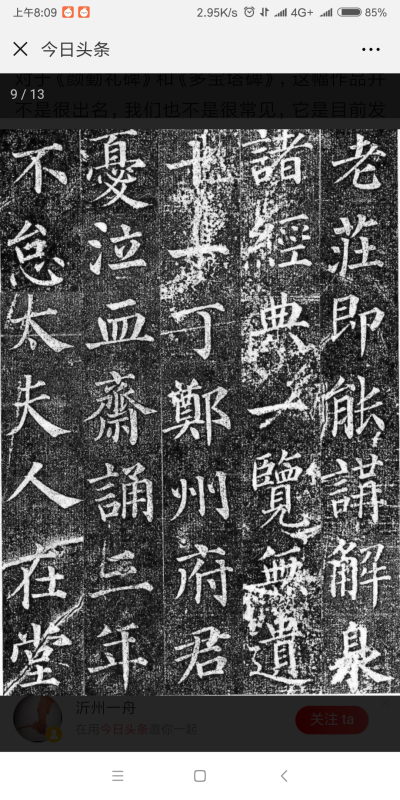 上午8:09 2.95K/s 4G+ 85%
今日头条
对于《颜勤礼碑》和《多宝塔碑》，这幅作品并
9 / 13
不是很出名，我们也不是很常见，它是目前发
老莊即能講解臮
諸經典一覽無遺
十一丁鄭州府君
憂泣血齋誦三年
不怠太夫人在堂
沂州一舟
关注 ta
在用今日头条